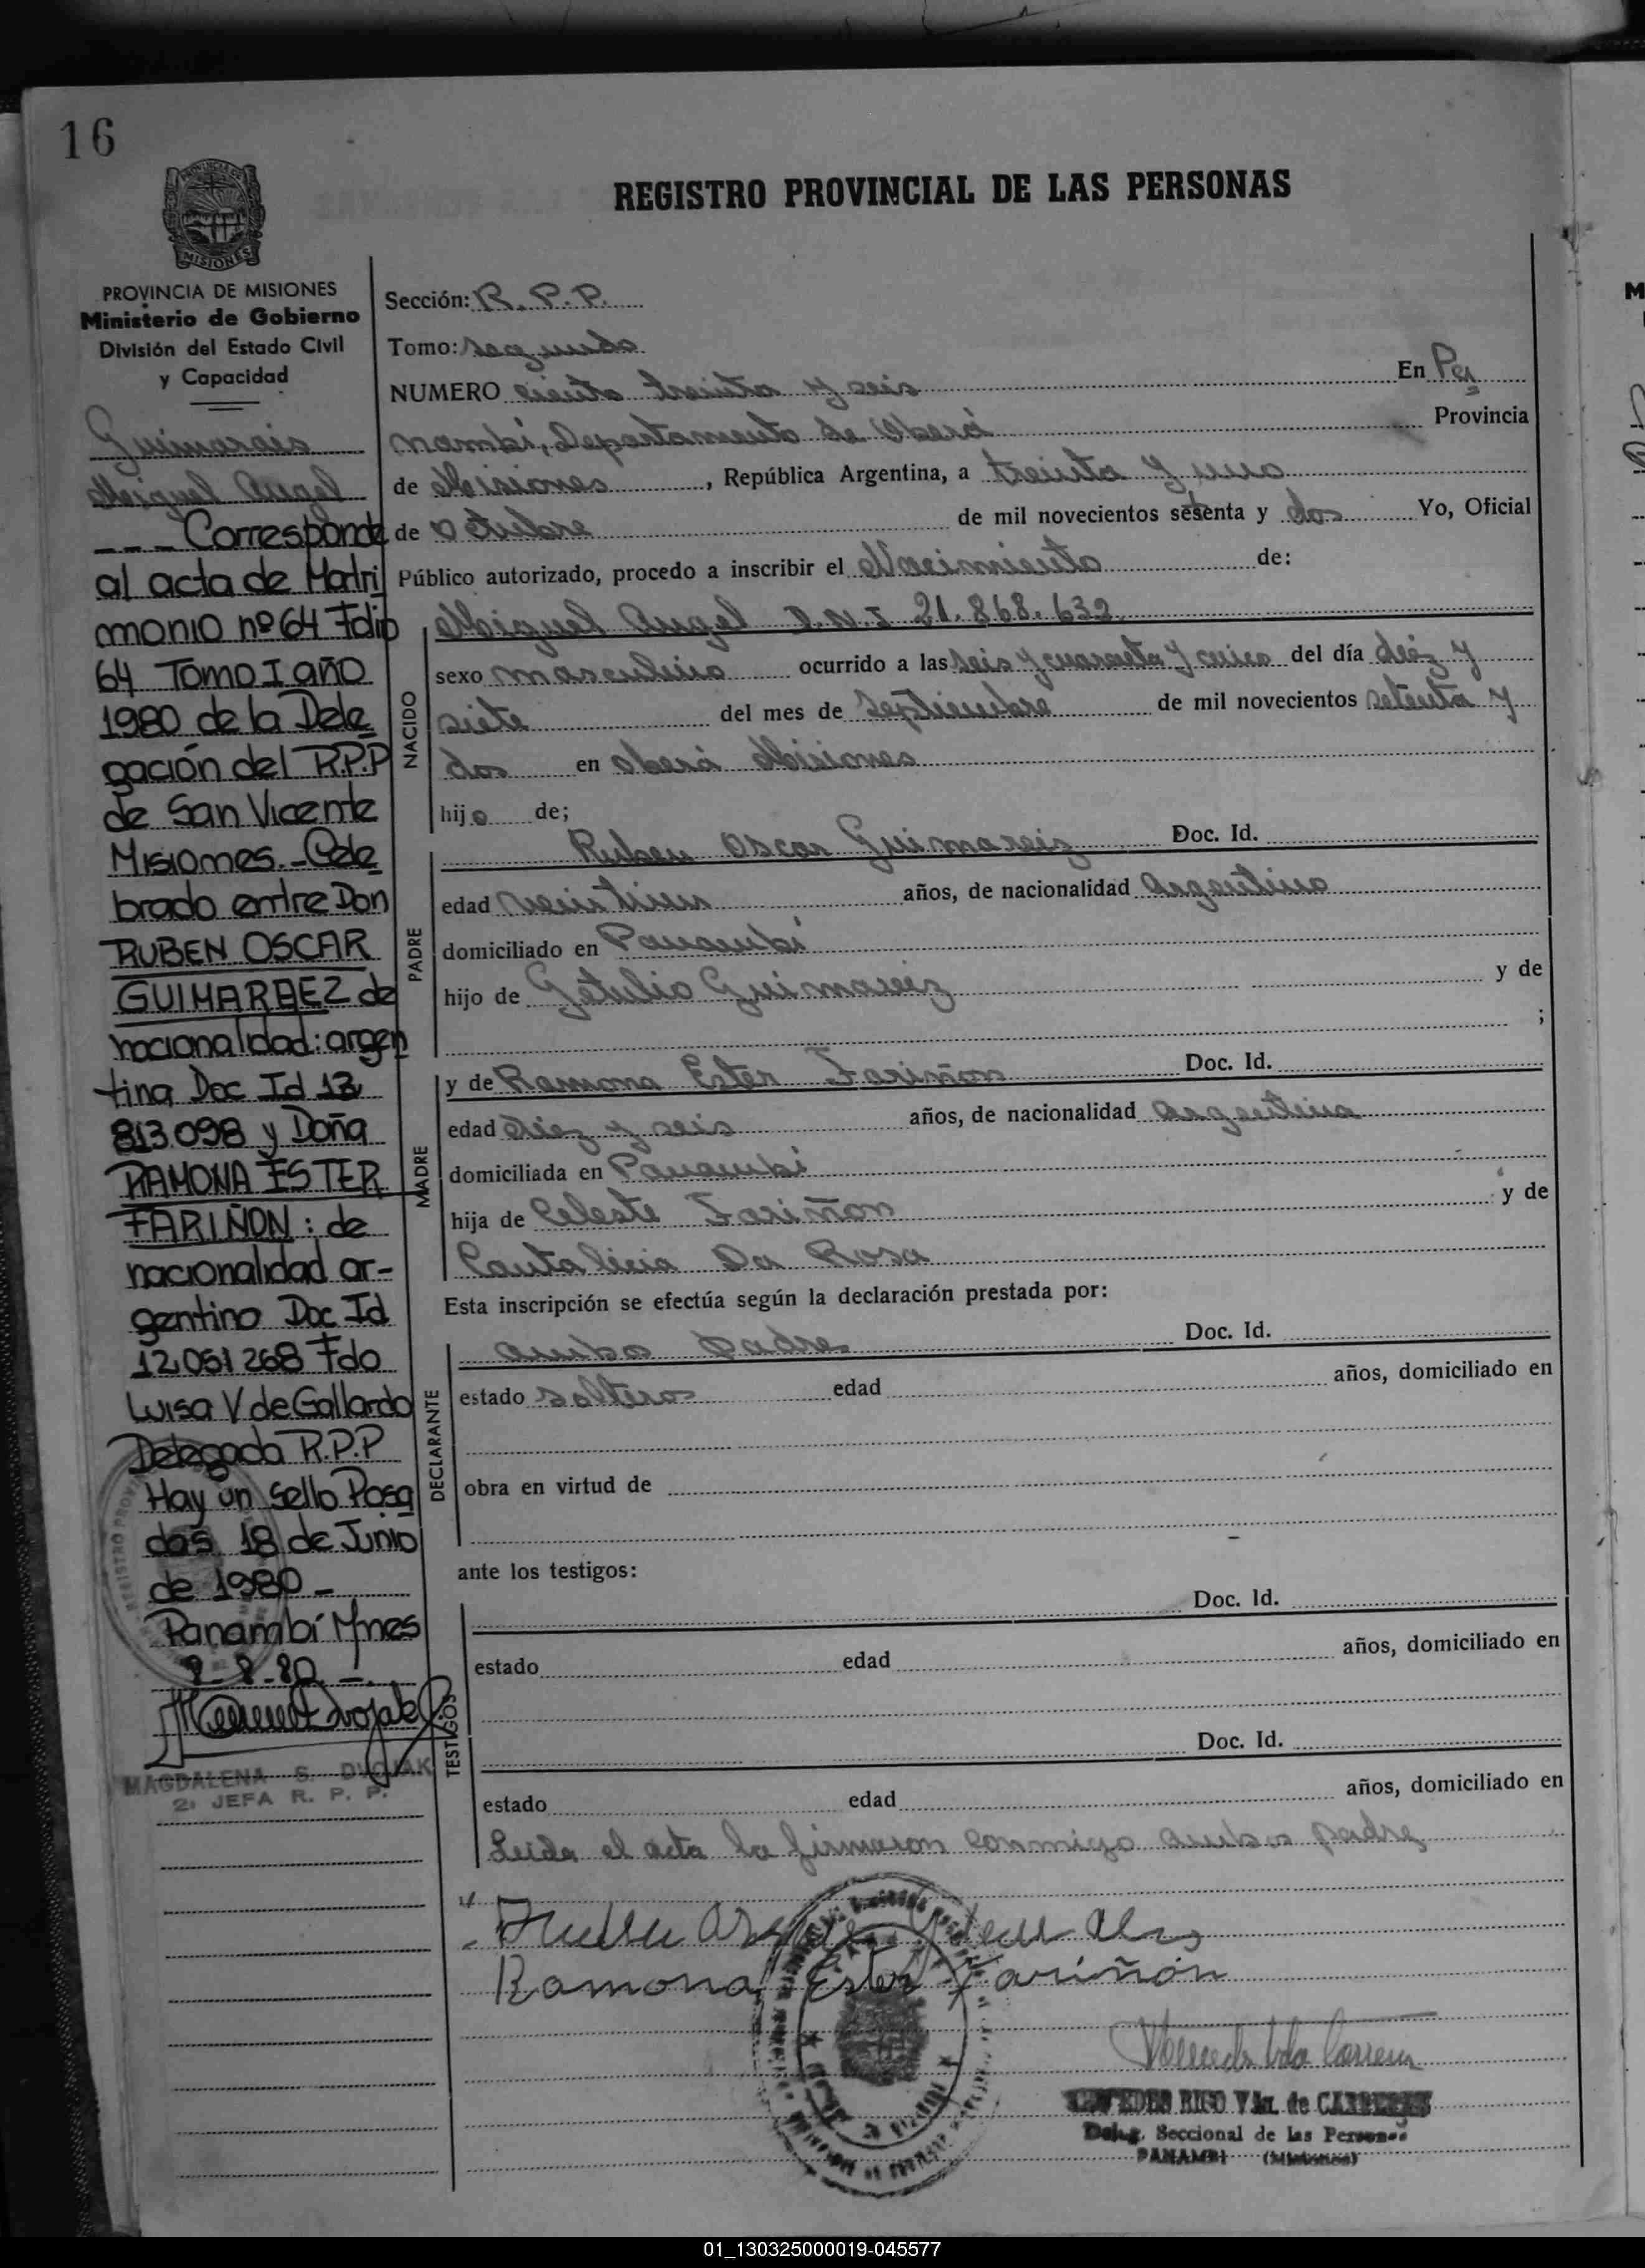 16
MISIONES
REGISTRO PROVINCIAL DE LAS PERSONAS
PROVINCIA DE MISIONES
Ministerio de Gobierno
División del Estado Civil
y Capacidad
Guimarais
Miguel Angel
--- Corresponde
al acta de Matri
monio nº 64 Folio
64 Tomo I año
1980 de la Dele
gación del R.P.P
de San Vicente
Misiones.- Cele
brado entre Don
RUBEN OSCAR
GUIMARAEZ de
nacionalidad: argen
tina Doc Id 13
813.098 y Doña
RAMONA ESTER
FARIÑON: de
nacionalidad ar-
gentino Doc Id
12.051 268 Fdo
Luisa V de Gallardo
Delegada R.P.P
Hay un sello Posa
das 18 de Junio
de 1980 -
Panambí Mnes
8-8-80 -.
MAGDALENA S. DVOJAK
2ª JEFA R. P. P.
Sección: R. P. P.
Tomo: segundo
NUMERO ciento treinta y seis En Pa
nambí, Departamento de Oberá Provincia
de Misiones, República Argentina, a treinta y uno
de Octubre de mil novecientos setenta y dos Yo, Oficial
Público autorizado, procedo a inscribir el Nacimiento de:
Miguel Angel D.N.I 21.868.632
NACIDO
sexo masculino ocurrido a las seis y cuarenta y cinco del día diéz y
siete del mes de Septiembre de mil novecientos setenta y
dos en Oberá Misiones
hijo de;
PADRE
Ruben Oscar Guimareiz Doc. Id.
edad veintiun años, de nacionalidad Argentino
domiciliado en Panambí
hijo de Getulio Guimareiz y de
;
MADRE
y de Ramona Ester Fariñon Doc. Id.
edad diez y seis años, de nacionalidad Argentina
domiciliada en Panambí
hija de Celeste Fariñon y de
Cantalicia Da Rosa
Esta inscripción se efectúa según la declaración prestada por:
DECLARANTE
ambos padres Doc. Id.
estado solteros edad años, domiciliado en
obra en virtud de
ante los testigos:
TESTIGOS
Doc. Id.
estado edad años, domiciliado en
Doc. Id.
estado edad años, domiciliado en
Leida el acta la firmaron conmigo ambos padres
Ramona Ester Fariñón
RICO Vda. de
Deleg. Seccional de las Personas
PANAMBI (Misiones)
01_130325000019-045577